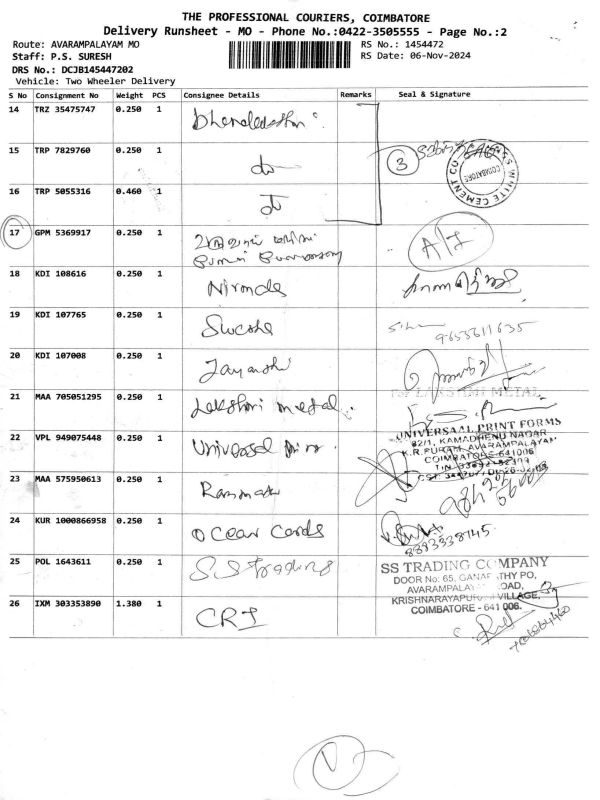 THE PROFESSIONAL COURIERS, COIMBATORE
Delivery Runsheet - MO - Phone No.:0422-3505555 - Page No.:2
Route: AVARAMPALAYAM MO
RS No.: 1454472
Staff: P.S. SURESH
RS Date: 06-Nov-2024
DRS No.: DCJB145447202
Vehicle: Two Wheeler Delivery
S No Consignment No Weight PCS Consignee Details Remarks Seal & Signature
14 TRZ 35475747 0.250 1
15 TRP 7829760 0.250 1
3
WHITE CEMENT CO
COIMBATORE
16 TRP 5055316 0.460 1
17 GPM 5369917 0.250 1
A/I
18 KDI 108616 0.250 1 Nirmala
19 KDI 107765 0.250 1
9655611635
20 KDI 107008 0.250 1 Jayanthi
For LAKSHMI METAL
21 MAA 705051295 0.250 1 Lakshmi metal
22 VPL 949075448 0.250 1 Universal
UNIVERSAAL PRINT FORMS
82/1, KAMADHENU NAGAR
K.R.PURAM, AVARAMPALAYAM
COIMBATORE-641006
23 MAA 575950613 0.250 1
24 KUR 1000866958 0.250 1 Ocean Cards
8883538745
25 POL 1643611 0.250 1 SS Trading
SS TRADING COMPANY
DOOR No: 65, GANAPATHY PO,
AVARAMPALAYAM ROAD,
KRISHNARAYAPURAM VILLAGE,
COIMBATORE - 641 006.
26 IXM 303353890 1.380 1 CRI